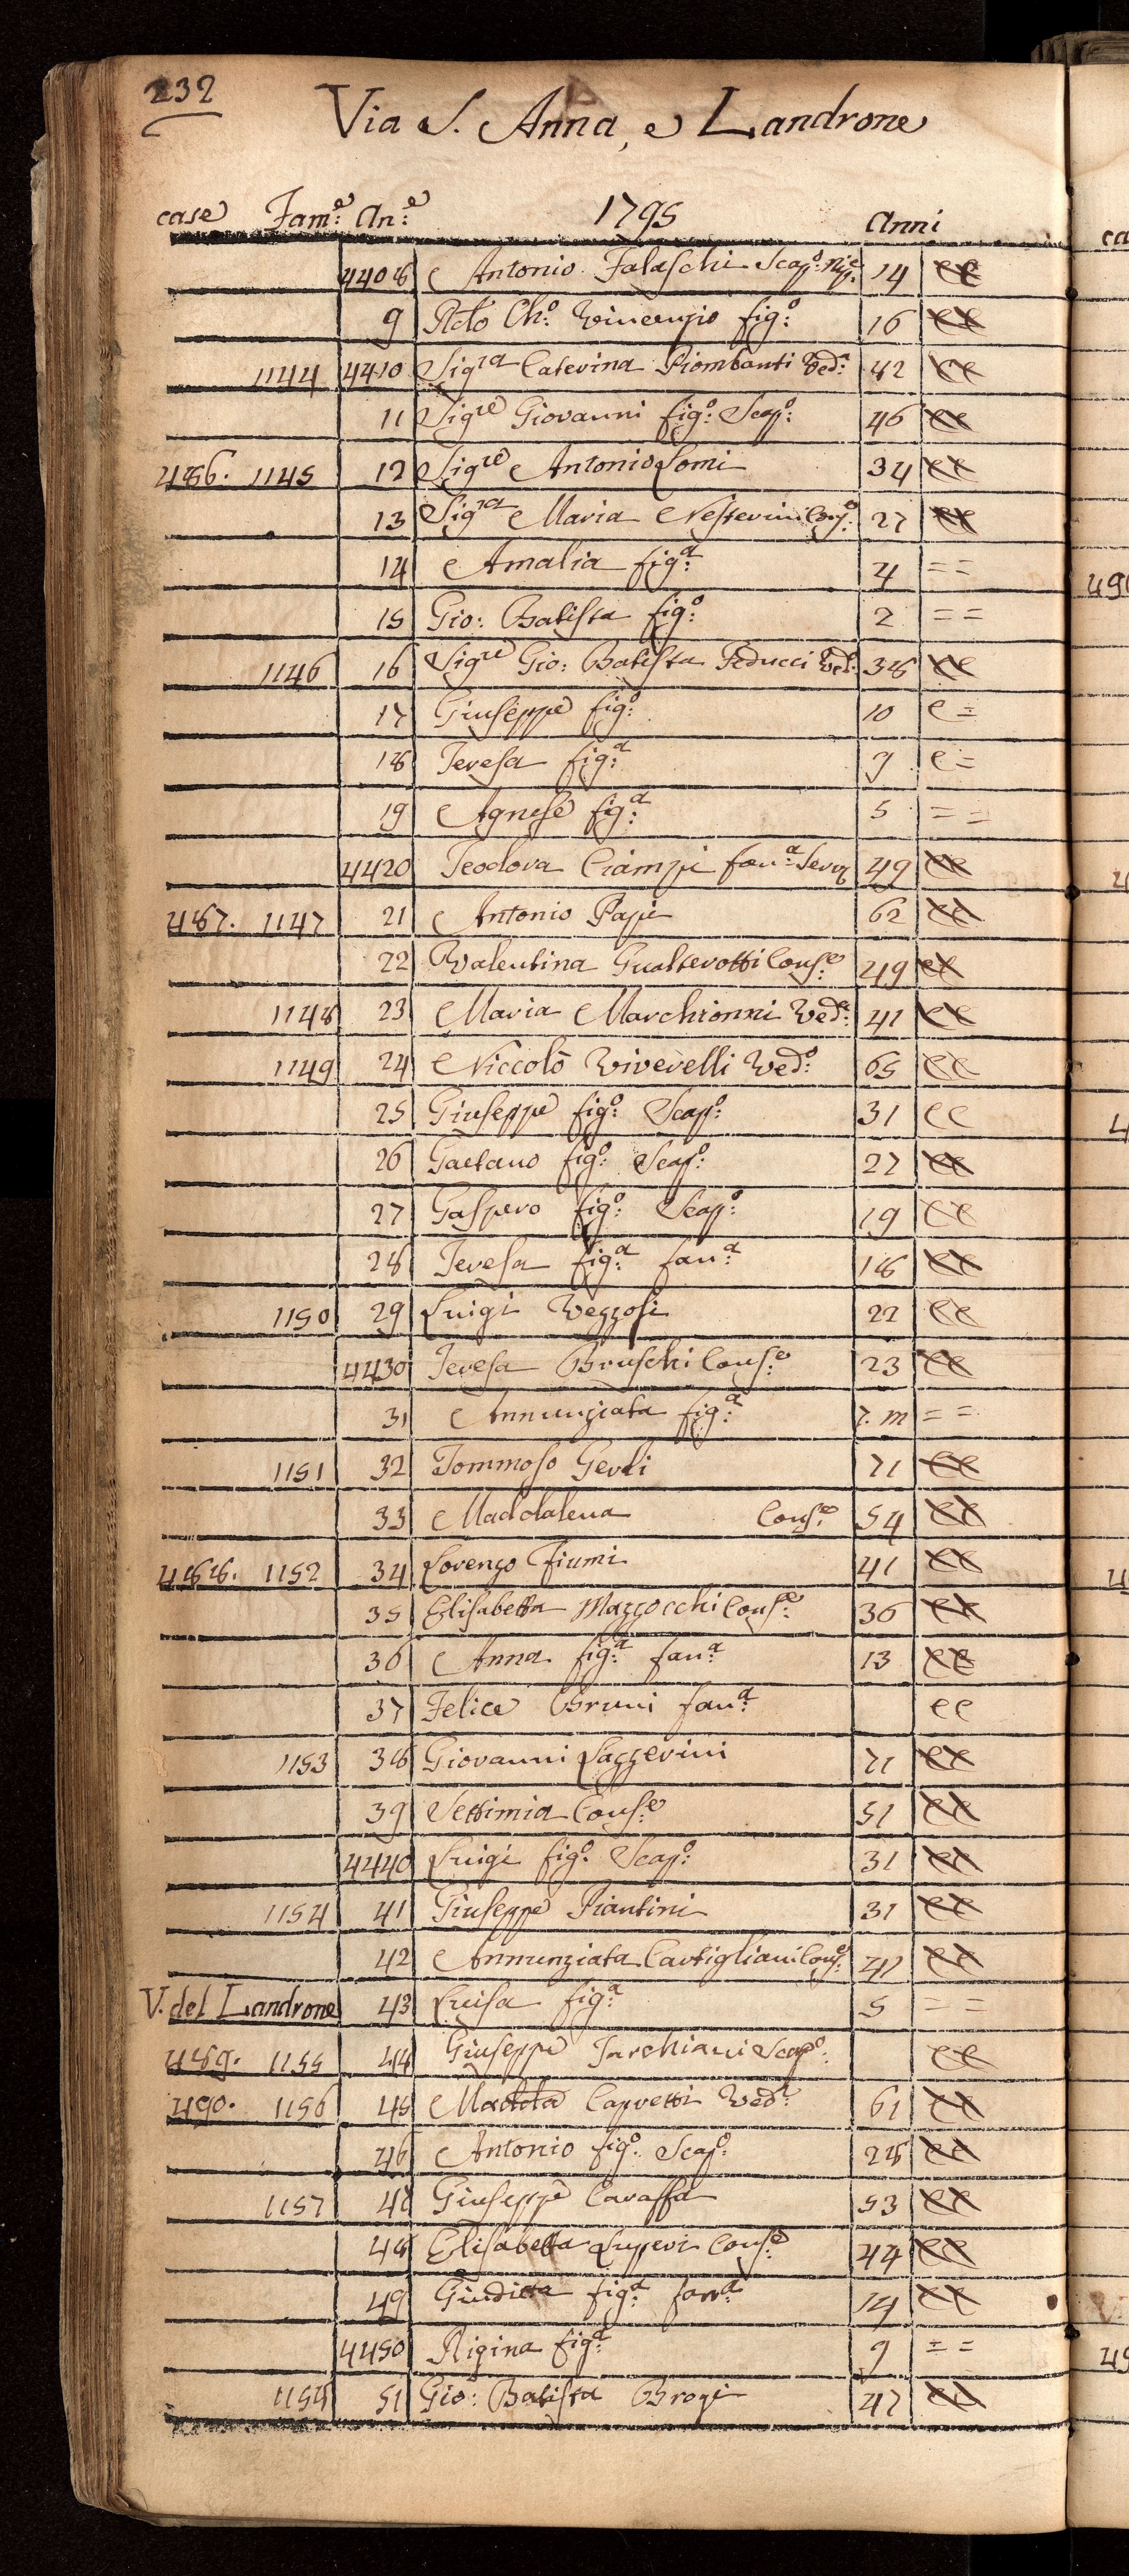 232
Via S. Anna, e Landrone
case Fam:e An:e 1795 Anni
4408 Antonio Falaschi Scap:o Nip:e 14 ee
9 Atto Ch:o Vincenzio fig:o 16 ee
1144 4410 Sig.ra Caterina Piombanti Ved:a 82 ee
11 Sig.re Giovanni fig:o Scap:o 46 ee
486. 1145 12 Sig.re Antonio Lomi 34 ee
13 Sig.ra Maria Nesterini Cons:e 27 ee
14 Amalia fig:a 4 = =
15 Gio: Batista fig:o 2 = =
1146 16 Sig.re Gio: Batista Feducci Ved:o 38 ee
17 Giuseppe fig:o 10 e =
18 Teresa fig:a 9 e =
19 Agnese fig:a 5 = =
4420 Teodora Ciampi fan:a Serv 49 ee
487. 1147 21 Antonio Papi 62 ee
22 Valentina Gualterotti Cons:e 49 ee
1148 23 Maria Marchionni Ved:a 41 ee
1149 24 Niccolò Viverelli Ved:o 65 ee
25 Giuseppe fig:o Scap:o 31 ee
26 Gaetano fig:o Scap:o 27 ee
27 Gaspero fig:o Scap:o 19 ee
28 Teresa fig:a fan:a 18 ee
1150 29 Luigi Vezzosi 22 ee
4430 Teresa Bruschi Cons:e 23 ee
31 Annunziata fig:a 7. m = =
1151 32 Tommaso Gerli 71 ee
33 Maddalena Cons:e 54 ee
488. 1152 34 Lorenzo Fiumi 41 ee
35 Elisabetta Mazzocchi Cons:e 36 ee
36 Anna fig:a fan:a 13 ee
37 Felice Bruni fan:a ee
1153 38 Giovanni Lazzerini 71 ee
39 Settimia Cons:e 51 ee
4440 Luigi fig:o Scap:o 31 ee
1154 41 Giuseppe Piantini 31 ee
42 Annunziata Cartigliani Cons:e 41 ee
V. del Landrone 43 Luisa fig:a 5 = =
489. 1155 44 Giuseppe Tarchiani Scap:o ee
490. 1156 45 Madd:a Capretti Ved:a 61 ee
46 Antonio fig:o Scap:o 28 ee
1157 47 Giuseppe Caraffa 53 ee
48 Elisabetta Luperi Cons:e 44 ee
49 Giuditta fig:a fan:a 14 ee
4450 Rigina fig:a 9 = =
1158 51 Gio: Batista Brogi 47 ee